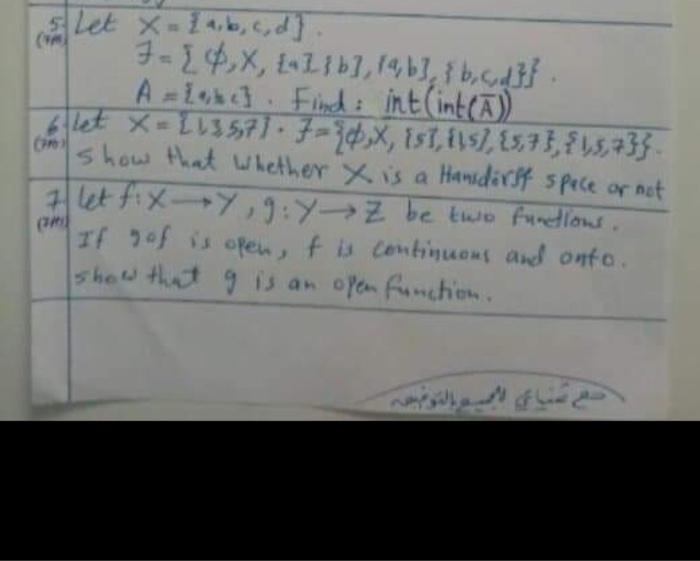 5 Let X = {a,b,c,d}.
J = {ϕ,X, {a},{b},{a,b},{b,c,d}}.
A = {a,b,c}. Find: int(int(Ā))
6 let X = {1,3,5,7}. J = {ϕ,X, {5},{1,5},{5,7},{1,5,7}}.
show that whether X is a Hausdorff space or not
7 let f:X→Y, g:Y→Z be two functions.
If gof is open, f is continuous and onto.
show that g is an open function.
مع للجميع بالتوفيق